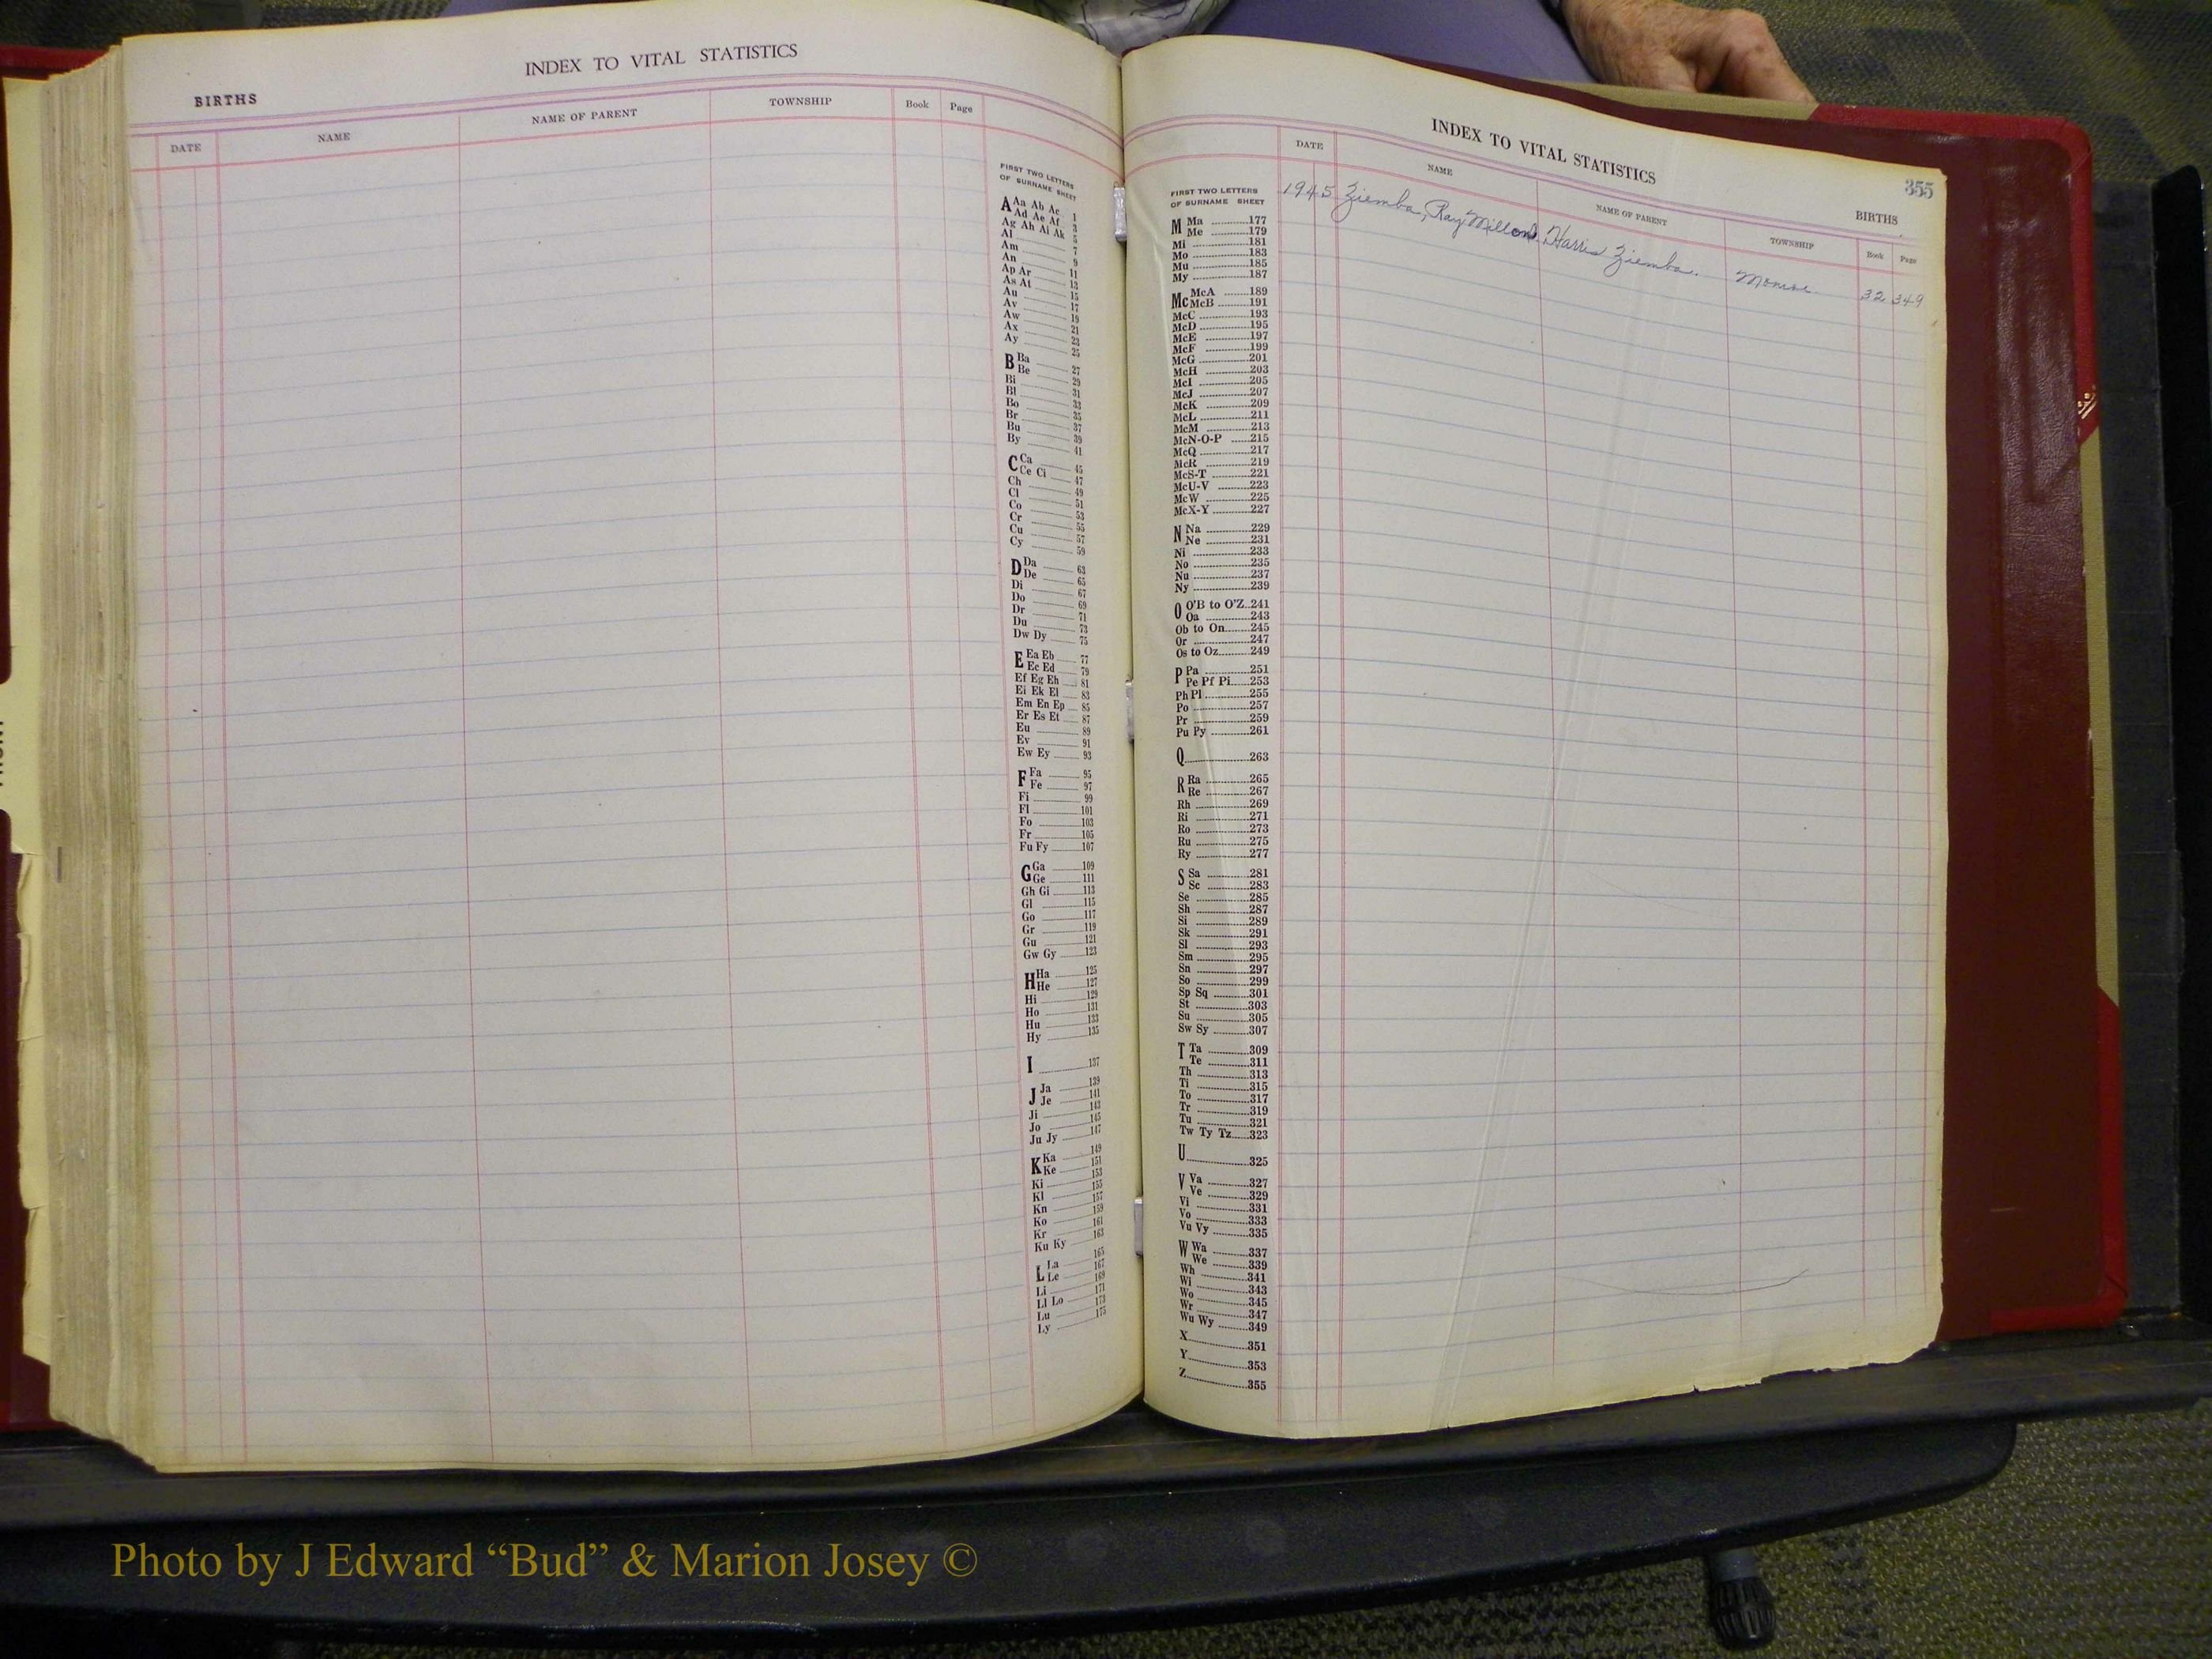 INDEX TO VITAL STATISTICS
BIRTHS
DATE NAME NAME OF PARENT TOWNSHIP Book Page
FIRST TWO LETTERS
OF SURNAME SHEET
A Aa Ab Ac 1
Ad Ae Af 3
Ag Ah Ai Ak 5
Al 7
Am 9
An 11
Ap Ar 13
As At 15
Au 17
Av 19
Aw 21
Ax 23
Ay 25
B Ba 27
Be 29
Bi 31
Bl 33
Bo 35
Br 37
Bu 39
By 41
C Ca 45
Ce Ci 47
Ch 49
Cl 51
Co 53
Cr 55
Cu 57
Cy 59
D Da 63
De 65
Di 67
Do 69
Dr 71
Du 73
Dw Dy 75
E Ea Eb 77
Ec Ed 79
Ef Eg Eh 81
Ei Ek El 83
Em En Ep 85
Er Es Et 87
Eu 89
Ev 91
Ew Ey 93
F Fa 95
Fe 97
Fi 99
Fl 101
Fo 103
Fr 105
Fu Fy 107
G Ga 109
Ge 111
Gh Gi 113
Gl 115
Go 117
Gr 119
Gu 121
Gw Gy 123
H Ha 125
He 127
Hi 129
Ho 131
Hu 133
Hy 135
I 137
J Ja 139
Je 141
Ji 143
Jo 145
Ju Jy 147
K Ka 149
Ke 151
Ki 153
Kl 155
Kn 157
Ko 159
Kr 161
Ku Ky 163
L La 165
Le 167
Li 169
Ll Lo 171
Lu 173
Ly 175
INDEX TO VITAL STATISTICS
355
BIRTHS
DATE NAME NAME OF PARENT TOWNSHIP Book Page
1945 Ziemba, Ray Millond Harris Ziemba. Monroe 32 349
FIRST TWO LETTERS
OF SURNAME SHEET
M Ma 177
Me 179
Mi 181
Mo 183
Mu 185
My 187
Mc McA 189
McB 191
McC 193
McD 195
McE 197
McF 199
McG 201
McH 203
McI 205
McJ 207
McK 209
McL 211
McM 213
McN-O-P 215
McQ 217
McR 219
McS-T 221
McU-V 223
McW 225
McX-Y 227
N Na 229
Ne 231
Ni 233
No 235
Nu 237
Ny 239
O O'B to O'Z 241
Oa 243
Ob to On 245
Or 247
Os to Oz 249
P Pa 251
Pe Pf Pi 253
Ph Pl 255
Po 257
Pr 259
Pu Py 261
Q 263
R Ra 265
Re 267
Rh 269
Ri 271
Ro 273
Ru 275
Ry 277
S Sa 281
Sc 283
Se 285
Sh 287
Si 289
Sk 291
Sl 293
Sm 295
Sn 297
So 299
Sp Sq 301
St 303
Su 305
Sw Sy 307
T Ta 309
Te 311
Th 313
Ti 315
To 317
Tr 319
Tu 321
Tw Ty Tz 323
U 325
V Va 327
Ve 329
Vi 331
Vo 333
Vu Vy 335
W Wa 337
We 339
Wh 341
Wi 343
Wo 345
Wr 347
Wu Wy 349
X 351
Y 353
Z 355
Photo by J Edward “Bud” & Marion Josey ©